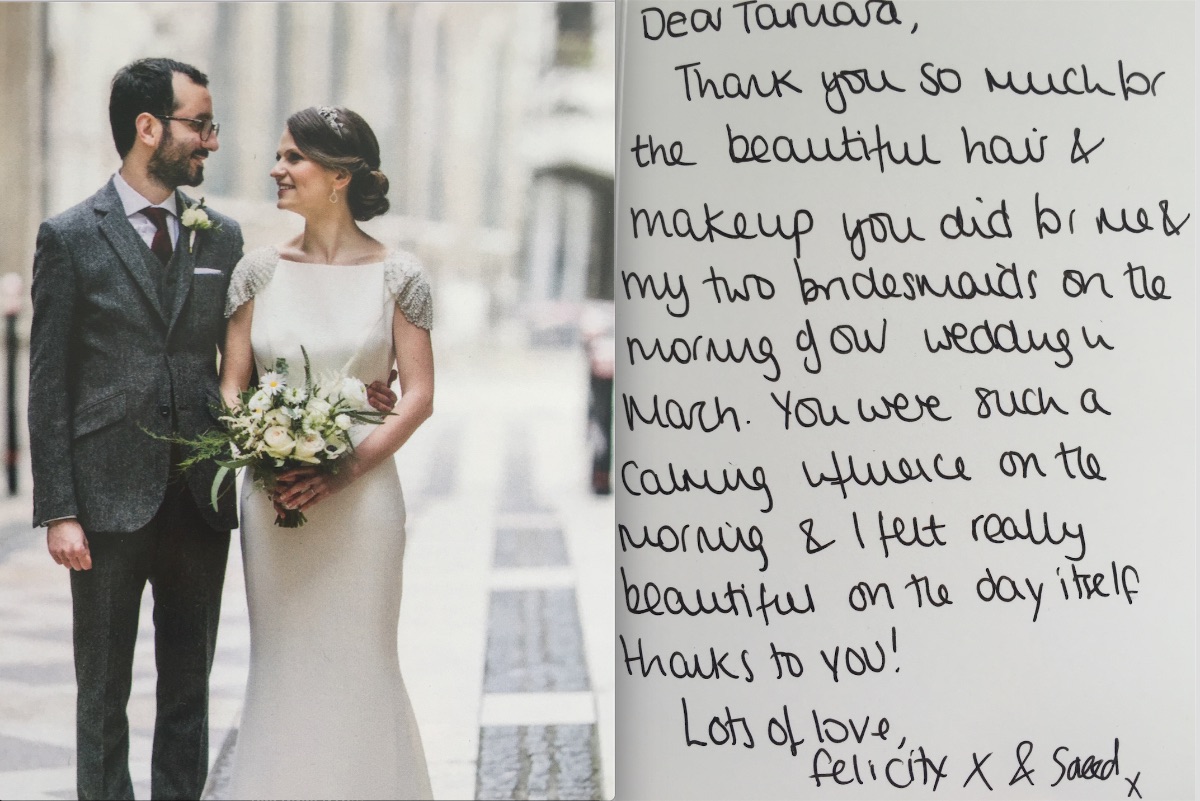 Dear Tamara,
Thank you so much for
the beautiful hair &
makeup you did for me &
my two bridesmaids on the
morning of our wedding in
March. You were such a
calming influence on the
morning & I felt really
beautiful on the day itself
thanks to YOU!
Lots of love,
Felicity X & Saeed x